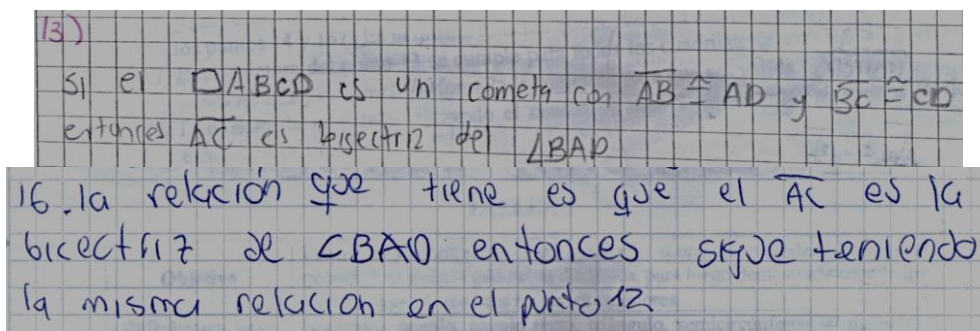 13)
si el □ABCD es un cometa con AB ≅ AD y BC ≅ CD
entonces AC es bisectriz del ∠BAD
16. la relación que tiene es que el AC es la
bicectriz de ∠BAD entonces sigue teniendo
la misma relacion en el punto 12